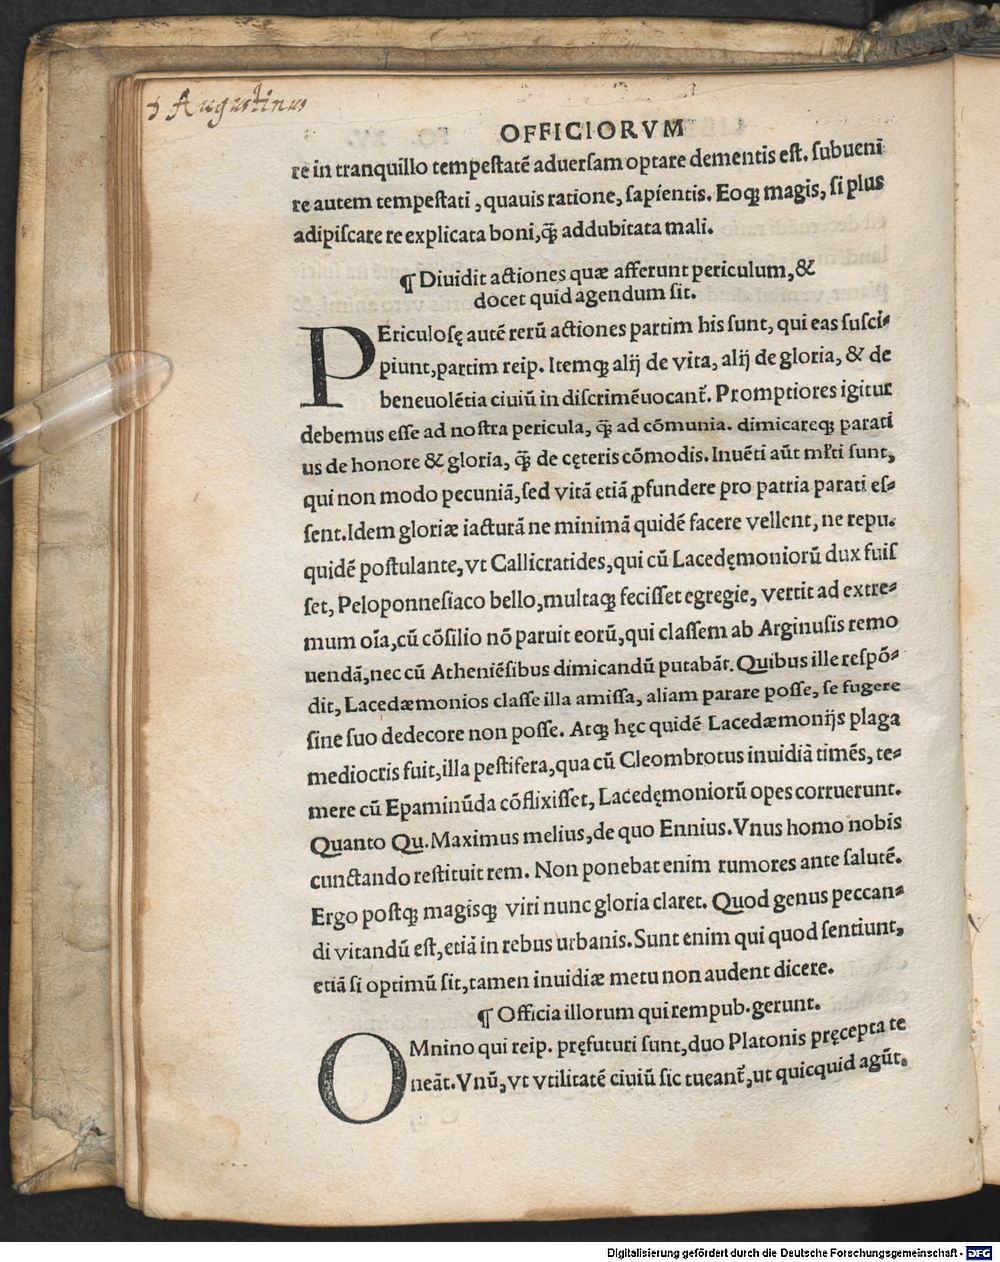 D Augustinus
OFFICIORVM
re in tranquillo tempeſtatē aduerſam optare dementis eſt. ſubueni
re autem tempeſtati, quauis ratione, ſapientis. Eoqꝫ magis, ſi plus
adipiſcare re explicata boni, q̄ꝫ addubitata mali.
¶ Diuidit actiones quæ afferunt periculum, &
docet quid agendum ſit.
PEriculoſę autē rerū actiones partim his ſunt, qui eas ſuſci-
piunt, partim reip. Itemqꝫ alij de vita, alij de gloria, & de
beneuolētia ciuiū in diſcrimē uocant᷑. Promptiores igitur
debemus eſſe ad noſtra pericula, q̄ꝫ ad cōmunia. dimicareqꝫ parati
us de honore & gloria, q̄ꝫ de cęteris cōmodis. Inuēti aūt ml̓ti ſunt,
qui non modo pecuniā, ſed vitā etiā ꝓfundere pro patria parati eſ-
ſent. Idem gloriæ iacturā ne minimā quidē facere vellent, ne repu.
quidē poſtulante, vt Callicratides, qui cū Lacedęmoniorū dux fuiſ
ſet, Peloponneſiaco bello, multaqꝫ feciſſet egregie, vertit ad extre-
mum oīa, cū cōſilio nō paruit eorū, qui claſſem ab Arginuſis remo
uendā, nec cū Atheniēſibus dimicandū putabāt. Quibus ille reſpō-
dit, Lacedæmonios claſſe illa amiſſa, aliam parare poſſe, ſe fugere
ſine ſuo dedecore non poſſe. Atqꝫ hęc quidē Lacedæmonijs plaga
mediocris fuit, illa peſtifera, qua cū Cleombrotus inuidiā timēs, te-
mere cū Epaminūda cōflixiſſet, Lacedęmoniorū opes corruerunt.
Quanto Qu. Maximus melius, de quo Ennius. Vnus homo nobis
cunctando reſtituit rem. Non ponebat enim rumores ante ſalutē.
Ergo poſtqꝫ magisqꝫ viri nunc gloria claret. Quod genus peccan-
di vitandū eſt, etiā in rebus urbanis. Sunt enim qui quod ſentiunt,
etiā ſi optimū ſit, tamen inuidiæ metu non audent dicere.
¶ Officia illorum qui rempub. gerunt.
OMnino qui reip. pręfuturi ſunt, duo Platonis pręcepta te
neāt. Vnū, vt vtilitatē ciuiū ſic tueant᷑, ut quicquid agūt.
Digitalisierung gefördert durch die Deutsche Forschungsgemeinschaft - DFG